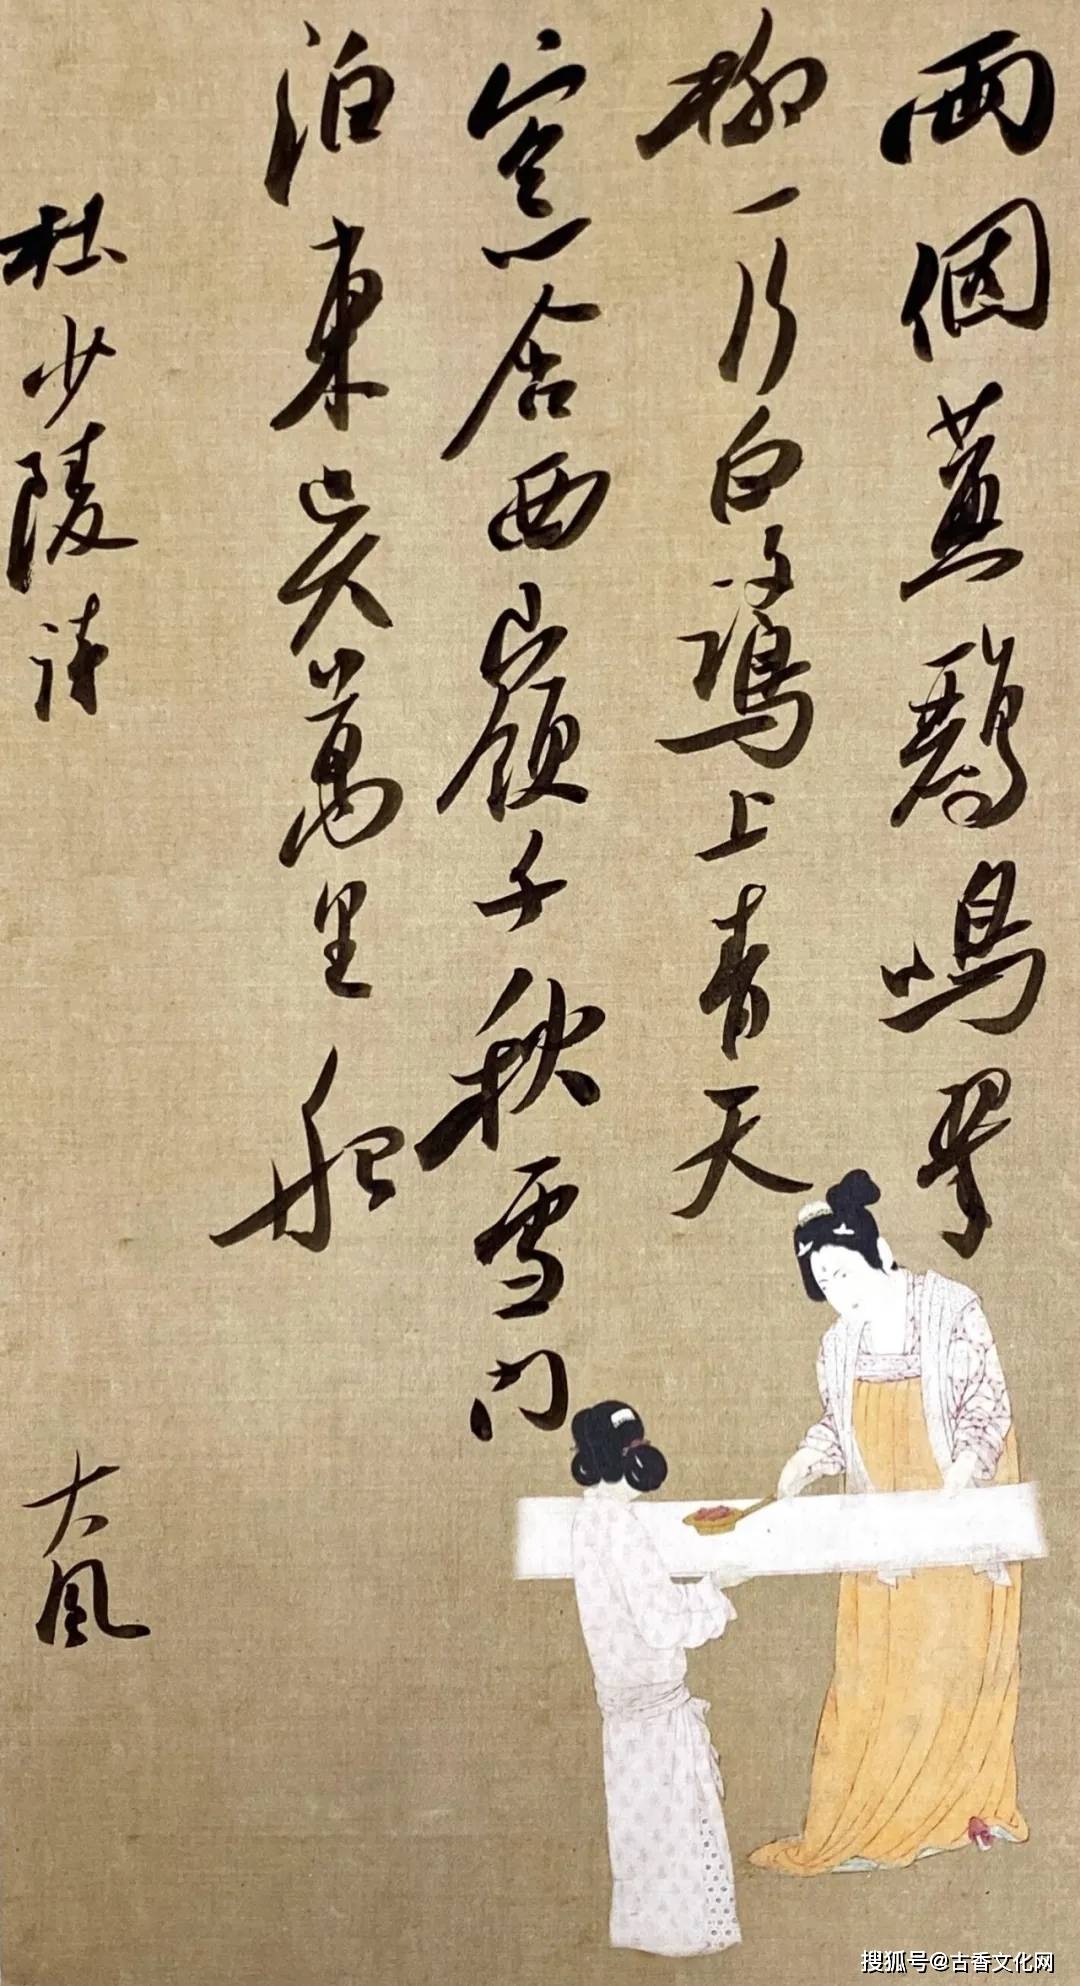 兩個黃鸝鳴翠
柳一行白鷺上青天
窓含西嶺千秋雪門
泊東吳萬里船
杜少陵詩
大風
搜狐号@古香文化网